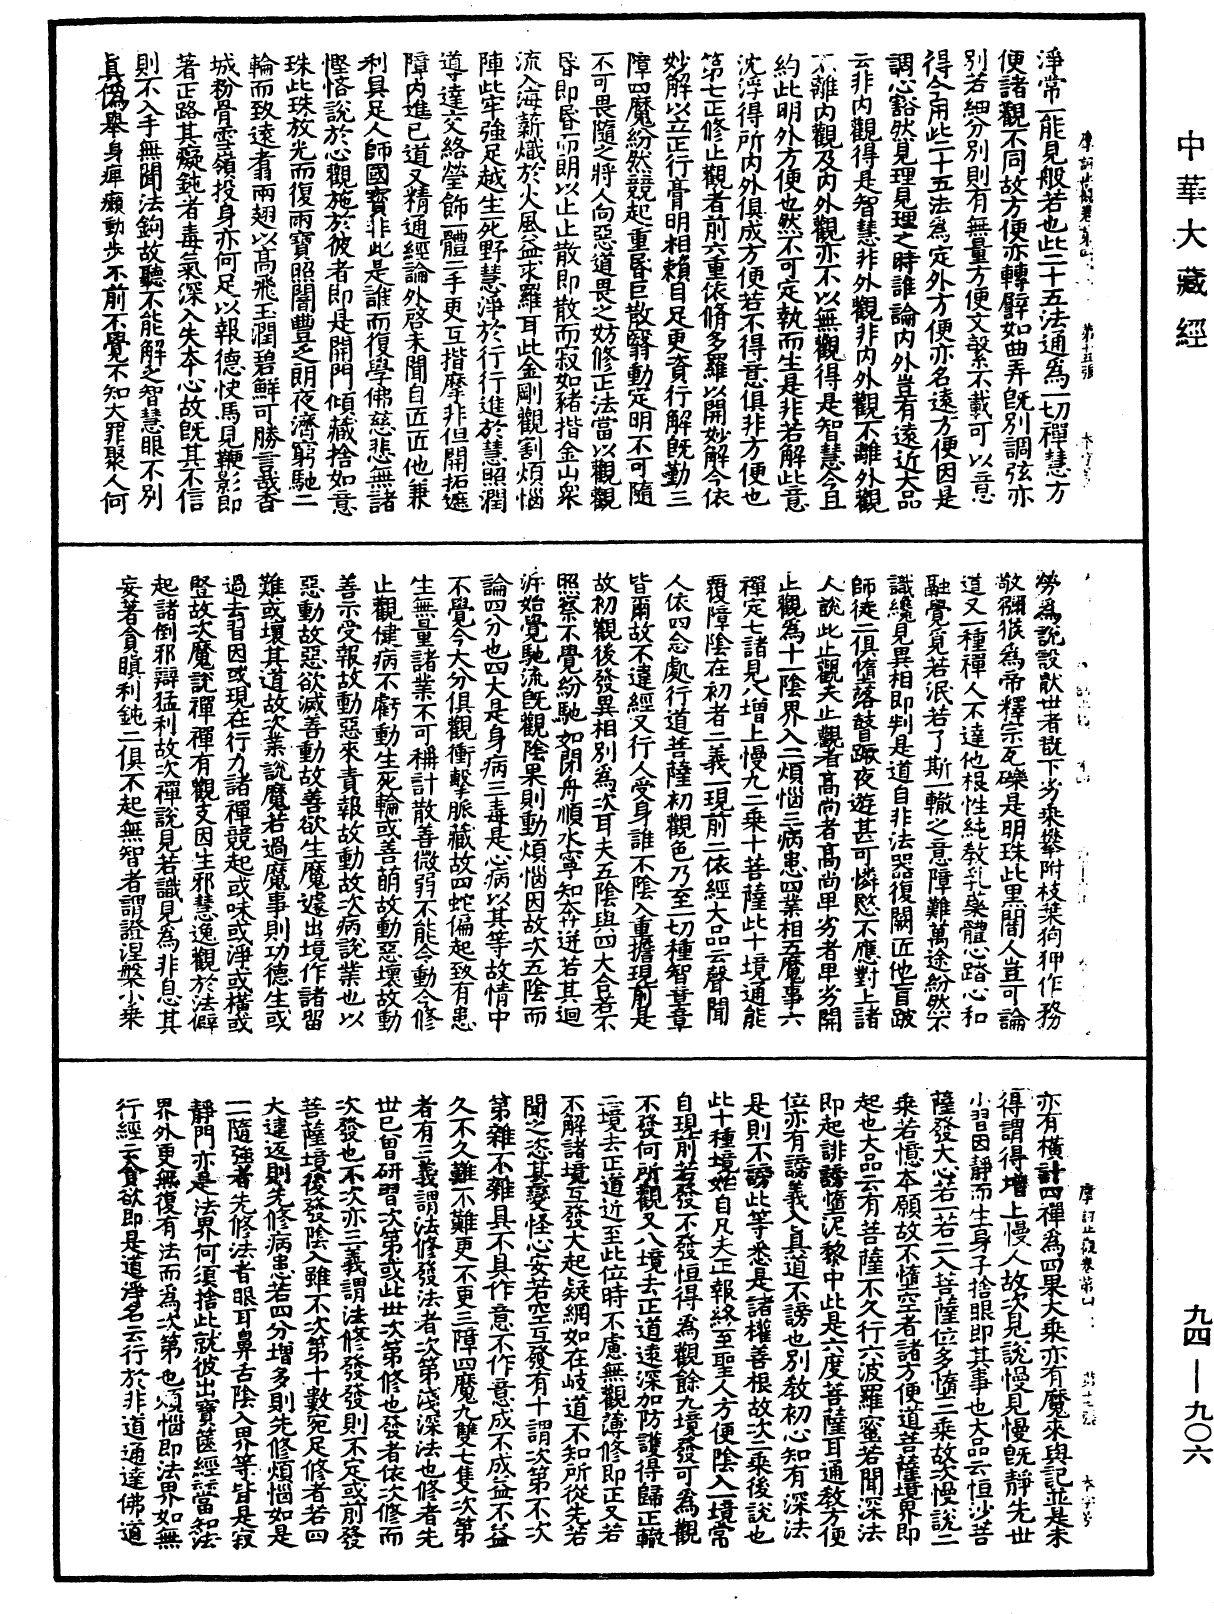 中華大藏經
淨常一能見般若也此二十五法通為一切禪慧方
便諸觀不同故方便亦轉譬如曲弄既別調弦亦
別若細分別則有無量方便文繁不載可以意
得今用此二十五法為定外方便亦名遠方便因是
調心豁然見理見理之時誰論內外豈有遠近大品
云非內觀得是智慧非外觀非內外觀不離外觀
不離內觀及內外觀亦不以無觀得是智慧今且
約此明外方便也然不可定執而生是非若解此意
沈浮得所內外俱成方便若不得意俱非方便也
第七正修止觀者前六重依脩多羅以開妙解今依
妙解以立正行膏明相賴目足更資行解既勤三
障四魔紛然競起重昏巨散翳動定明不可隨
不可畏隨之將人向惡道畏之妨修正法當以觀觀
昏即昏而朗以止止散即散而寂如豬揩金山眾
流入海薪熾於火風益求羅耳此金剛觀割煩惱
陣此牢強足越生死野慧淨於行行進於慧照潤
導達交絡瑩飾一體二手更互揩摩非但開拓遮
障內進己道又精通經論外啓未聞自匠匠他兼
利具足人師國寶非此是誰而復學佛慈悲無諸
慳悋說於心觀施於彼者即是開門傾藏捨如意
珠此珠放光而復雨寶照闇豐乏朗夜濟窮馳二
輪而致遠翥兩翅以高飛玉潤碧鮮可勝言哉香
城粉骨雪嶺投身亦何足以報德快馬見鞭影即
著正路其癡鈍者毒氣深入失本心故既其不信
則不入手無聞法鉤故聽不能解乏智慧眼不別
真偽舉身痺癩動步不前不覺不知大罪聚人何
勞為說設猒世者翫下劣乘攀附枝葉狗狎作務
敬獼猴為帝釋宗瓦礫是明珠此黑闇人豈可論
道又一種禪人不達他根性純教乳藥體心踏心和
融覺覓若泯若了斯一轍之意障難萬途紛然不
識纔見異相即判是道自非法器復闕匠他盲跛
師徒二俱墮落瞽蹶夜遊甚可憐愍不應對上諸
人說此止觀夫止觀者高尚者高尚卑劣者卑劣開
止觀為十一陰界入二煩惱三病患四業相五魔事六
禪定七諸見八增上慢九二乘十菩薩此十境通能
覆障陰在初者二義一現前二依經大品云聲聞
人依四念處行道菩薩初觀色乃至一切種智章章
皆爾故不違經又行人受身誰不陰入重擔現前是
故初觀後發異相別為次耳夫五陰與四大合若不
照察不覺紛馳如閉舟順水寧知奔迸若其迴
泝始覺馳流既觀陰果則動煩惱因故次五陰而
論四分也四大是身病三毒是心病以其等故情中
不覺今大分俱觀衝擊脈藏故四蛇偏起致有患
生無量諸業不可稱計散善微弱不能令動今修
止觀健病不虧動生死輪或善萌故動惡壞故動
善示受報故動惡來責報故動故次病說業也以
惡動故惡欲滅善動故善欲生魔遽出境作諸留
難或壞其道故次業說魔若過魔事則功德生或
過去習因或現在行力諸禪競起或味或淨或橫或
豎故次魔說禪禪有觀支因生邪慧逸觀於法僻
起諸倒邪辯猛利故次禪說見若識見為非息其
妄著貪瞋利鈍二俱不起無智者謂證涅槃小乘
亦有橫計四禪為四果大乘亦有魔來與記並是未
得謂得增上慢人故次見說慢見慢既靜先世
小習因靜而生身子捨眼即其事也大品云恒沙菩
薩發大心若一若二入菩薩位多墮二乘故次慢說二
乘若憶本願故不墮空者諸方便道菩薩境界即
起也大品云有菩薩不久行六波羅蜜若聞深法
即起誹謗墮泥黎中此是六度菩薩耳通教方便
位亦有謗義入真道不謗也別教初心知有深法
是則不謗此等悉是諸權善根故次二乘後說也
此十種境始自凡夫正報終至聖人方便陰入一境常
自現前若發不發恒得為觀餘九境發可為觀
不發何所觀又八境去正道遠深加防護得歸正轍
二境去正道近至此位時不慮無觀薄修即正又若
不解諸境互發大起疑網如在岐道不知所從先若
聞之恣其變怪心安若空互發有十謂次第不次
第雜不雜具不具作意不作意成不成益不益
久不久難不難更不更三障四魔九雙七隻次第
者有三義謂法修發法者次第淺深法也修者先
世已曾研習次第或此世次第修也發者依次修而
次發也不次亦三義謂法修發發則不定或前發
菩薩境後發陰入雖不次第十數宛足修者若四
大違返則先修病患若四分增多則先修煩惱如是
一一隨強者先修法者眼耳鼻舌陰入界等皆是寂
靜門亦是法界何須捨此就彼出寶篋經當知法
界外更無復有法而為次第也煩惱即法界如無
行經云貪欲即是道淨名云行於非道通達佛道
九四—九〇六